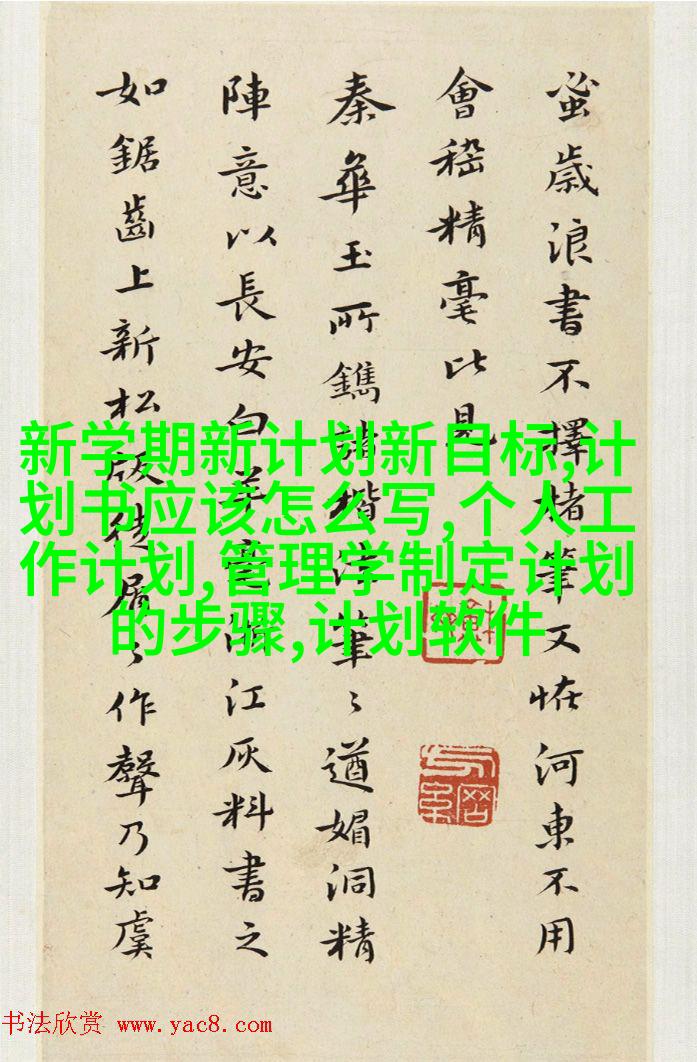 蚤歲浪書不擇楮筆又恠河東不用
會稽精毫比見
秦華玉所鐫諸楷法筆〻遒媚洞精
陣意以長安白羊毫江灰料書之
如鋸齒上新松版徒屑〻作聲乃知虞
新学期新计划新目标,计
划书应该怎么写,个人工
作计划,管理学制定计划
的步骤,计划软件
书法欣赏 www.yac8.com